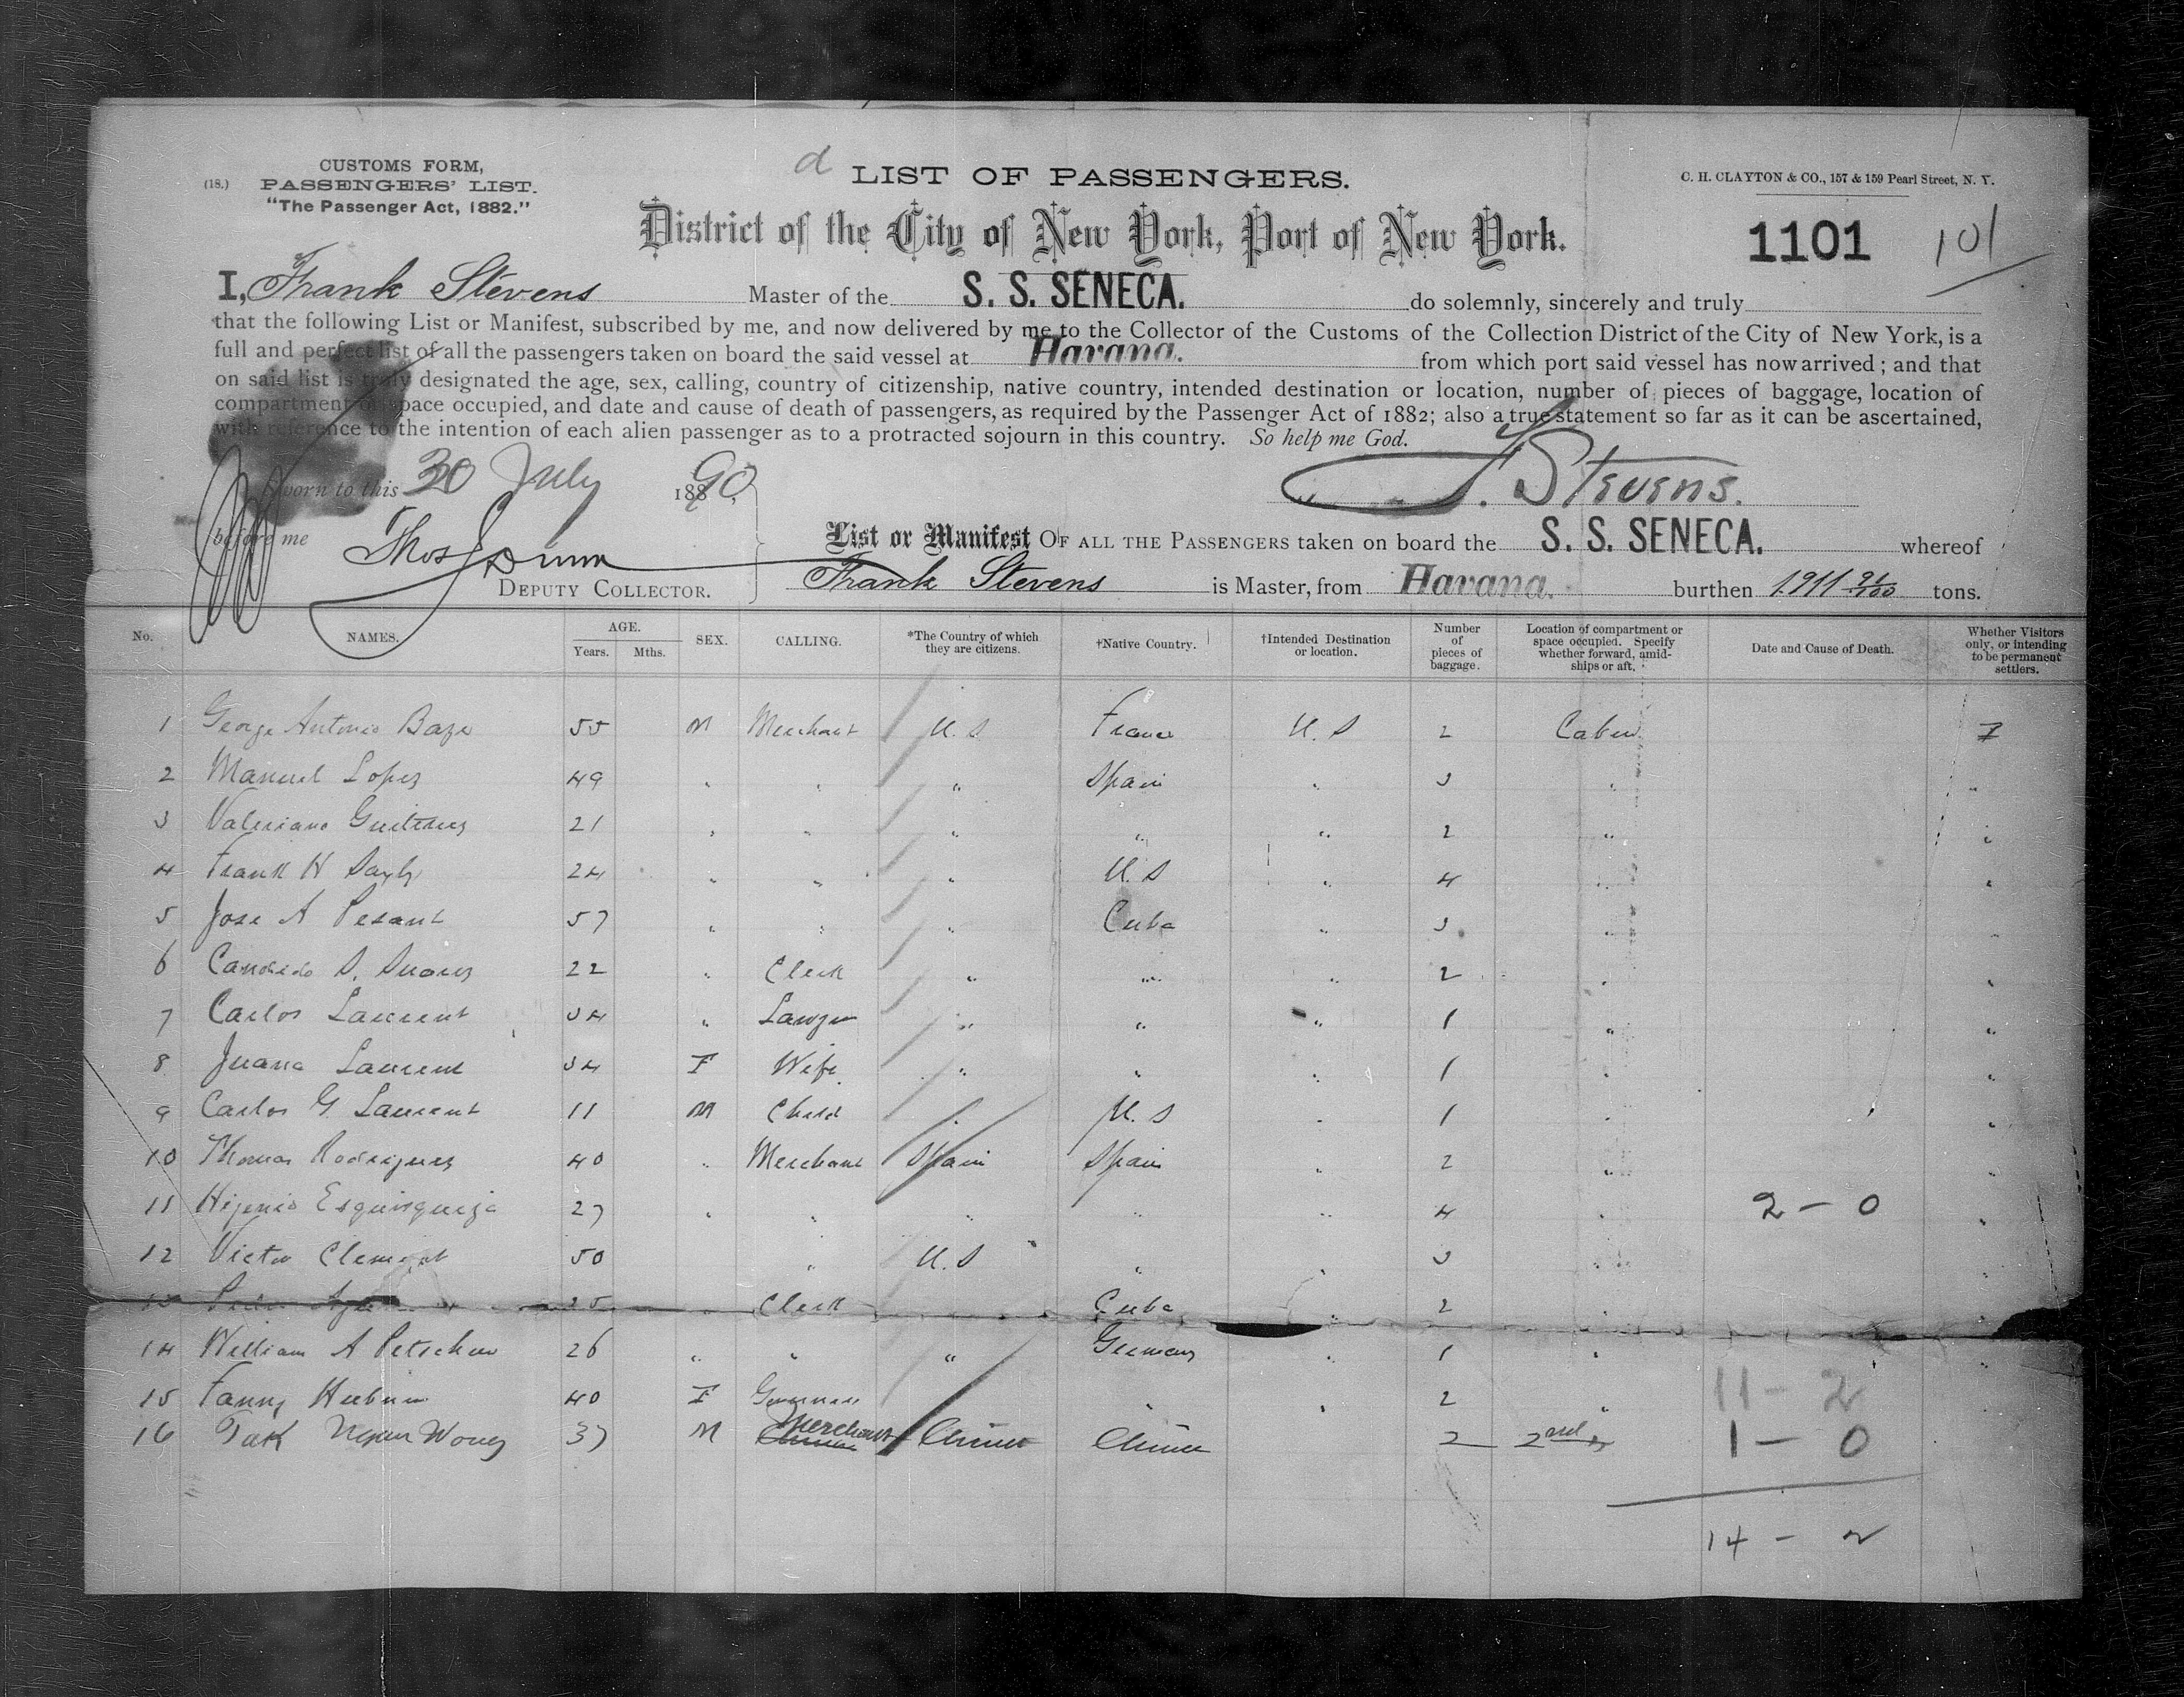 d
CUSTOMS FORM,
(18.) PASSENGERS' LIST.
"The Passenger Act, 1882."
LIST OF PASSENGERS.
C. H. CLAYTON & CO., 157 & 159 Pearl Street, N. Y.
District of the City of New York, Port of New York.
1101 101
I, Frank Stevens Master of the S. S. SENECA. do solemnly, sincerely and truly
that the following List or Manifest, subscribed by me, and now delivered by me to the Collector of the Customs of the Collection District of the City of New York, is a
full and perfect list of all the passengers taken on board the said vessel at Havana. from which port said vessel has now arrived; and that
on said list is truly designated the age, sex, calling, country of citizenship, native country, intended destination or location, number of pieces of baggage, location of
compartment or space occupied, and date and cause of death of passengers, as required by the Passenger Act of 1882; also a true statement so far as it can be ascertained,
with reference to the intention of each alien passenger as to a protracted sojourn in this country. So help me God.
Sworn to this 30 July 1890,
F. Stevens.
before me Thos Dunn
DEPUTY COLLECTOR.
List or Manifest OF ALL THE PASSENGERS taken on board the S. S. SENECA. whereof
Frank Stevens is Master, from Havana. burthen 1911 91/100 tons.
No. NAMES. AGE. Years. Mths. SEX. CALLING. *The Country of which they are citizens. †Native Country. †Intended Destination or location. Number of pieces of baggage. Location of compartment or space occupied. Specify whether forward, amidships or aft. Date and Cause of Death. Whether Visitors only, or intending to be permanent settlers.
1 George Antonio 55 M Merchant U. S France U. S 2 Cabin
2 Manuel Lopez 49 " " " Spain " 3 " "
3 Valeriano 21 " " " " " 2 " "
4 Frank H 24 " " " U. S " 4 " "
5 Jose A Pesant 57 " " " Cuba " 3 " "
6 Candido S. Suarez 22 " Clerk " " " 2 " "
7 Carlos Laurent 34 " Lawyer " " " 1 " "
8 Juana Laurent 34 F Wife " " " 1 " "
9 Carlos G. Laurent 11 M Child " U. S " 1 " "
10 Thomas Rodriguez 40 " Merchant Spain Spain " 2 " "
11 27 " " " " " 4 " 2 - 0 "
12 Victor Clement 50 " U. S " " 3 " "
13 25 " Clerk Cuba " 2 " "
14 William A 26 " " " Germany " 1 " "
15 Fanny 40 F Governess " " 2 " 11 - 2
16 Tak Wong 37 M Merchant China China 2 2nd 1 - 0
14 - 2